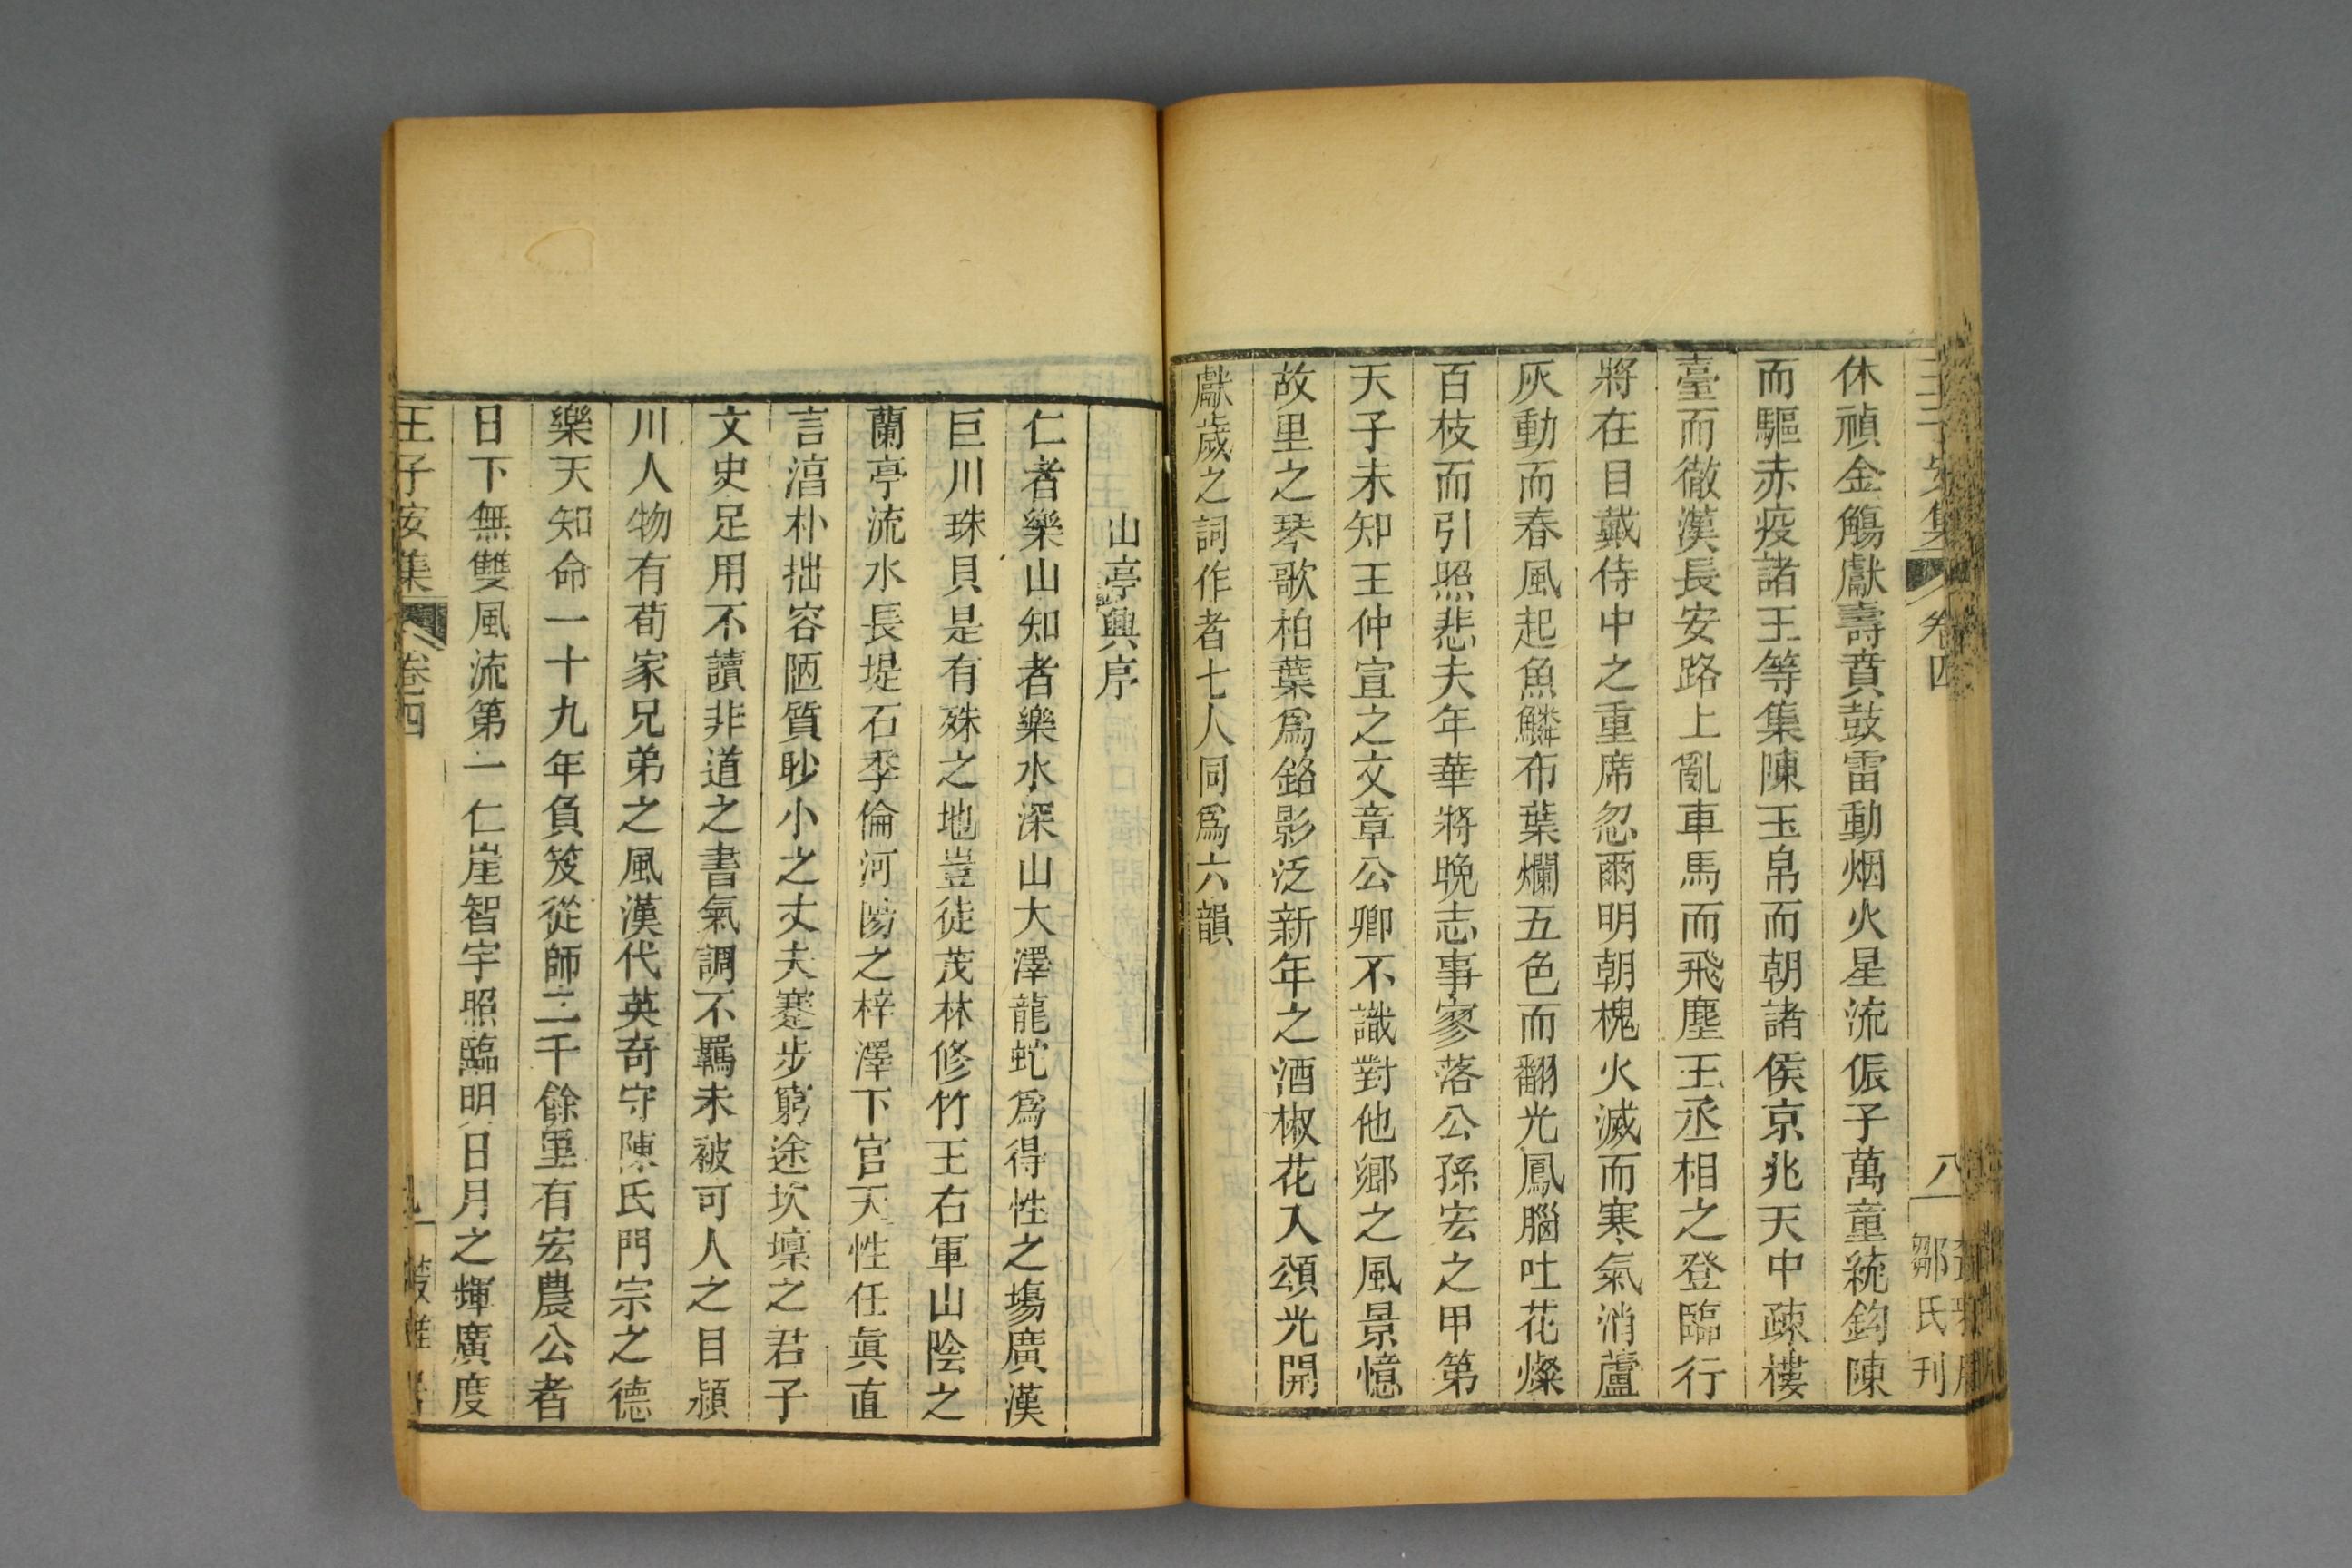 王子安集 卷四 八 鄒氏刊
休禎金觴獻壽賁鼓雷動烟火星流侲子萬童統鈎陳
而驅赤疫諸王等集陳玉帛而朝諸侯京兆天中疎樓
臺而徹漢長安路上亂車馬而飛塵王丞相之登臨行
將在目戴侍中之重席忽爾明朝槐火滅而寒氣消蘆
灰動而春風起魚鱗布葉爛五色而翻光鳳腦吐花燦
百枝而引照悲夫年華將晚志事寥落公孫宏之甲第
天子未知王仲宣之文章公卿不識對他鄉之風景憶
故里之琴歌柏葉爲銘影泛新年之酒椒花入頌光開
獻歲之詞作者七人同爲六韻
山亭興序
仁者樂山知者樂水深山大澤龍蛇爲得性之塲廣漢
巨川珠貝是有殊之地豈徒茂林修竹王右軍山陰之
蘭亭流水長堤石季倫河陽之梓澤下官天性任眞直
言淳朴拙容陋質眇小之丈夫蹇步窮途坎壈之君子
文史足用不讀非道之書氣調不羈未被可人之目潁
川人物有荀家兄弟之風漢代英奇守陳氏門宗之德
樂天知命一十九年負笈從師二千餘里有宏農公者
日下無雙風流第一仁崖智宇照臨明日月之輝廣度
王子安集 卷四